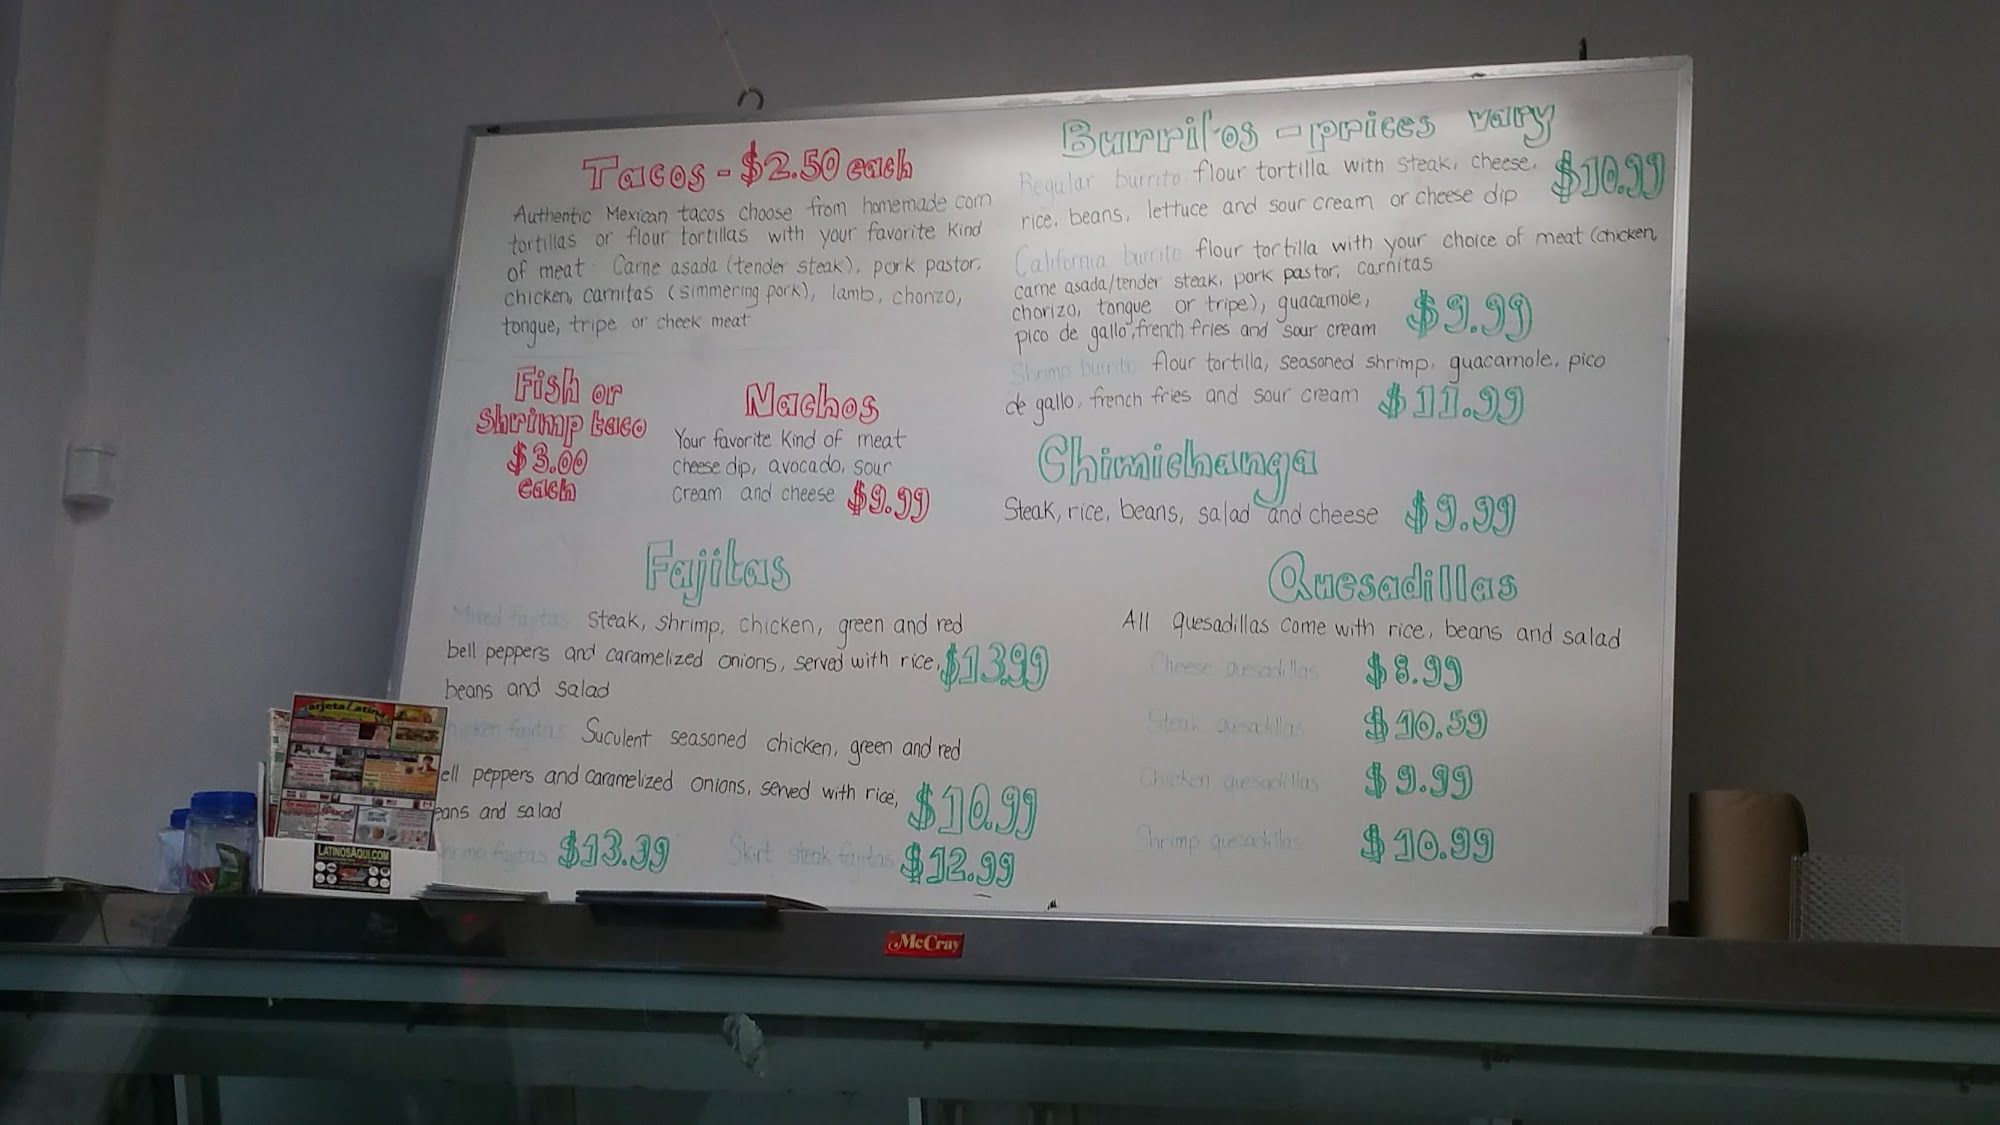 Tacos - $2.50 each
Authentic Mexican tacos choose from homemade corn
tortillas or flour tortillas with your favorite kind
of meat Carne asada (tender steak), pork pastor,
chicken, carnitas (simmering pork), lamb, chorizo,
tongue, tripe or cheek meat
Fish or
Shrimp taco
$3.00
each
Nachos
Your favorite kind of meat
cheese dip, avocado, sour
cream and cheese $9.99
Burritos - prices vary
Regular burrito flour tortilla with steak, cheese, $10.99
rice, beans, lettuce and sour cream or cheese dip
California burrito flour tortilla with your choice of meat (chicken,
carne asada/tender steak, pork pastor, carnitas
chorizo, tongue or tripe), guacamole,
pico de gallo, french fries and sour cream $9.99
Shrimp burrito flour tortilla, seasoned shrimp, guacamole, pico
de gallo, french fries and sour cream $11.99
Chimichanga
Steak, rice, beans, salad and cheese $9.99
Fajitas
Mixed fajitas steak, shrimp, chicken, green and red
bell peppers and caramelized onions, served with rice, $13.99
beans and salad
chicken fajitas Suculent seasoned chicken, green and red
ell peppers and caramelized onions, served with rice, $10.99
eans and salad
hrimp fajitas $13.99 Skirt steak fajitas $12.99
Quesadillas
All quesadillas come with rice, beans and salad
Cheese quesadillas $8.99
Steak quesadillas $10.59
Chicken quesadillas $9.99
Shrimp quesadillas $10.99
arjeta Latina
LATINOSAQUI.COM
McCray